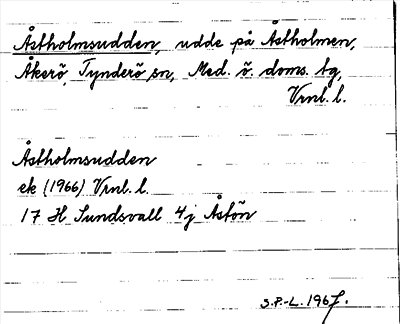 Åstholmsudden, udde på Åstholmen,
Åkerö, Tynderö sn, Med. ö. doms. tg,
Vrnl. l.
Åstholmsudden
ek (1966) Vrnl. l.
17 H Sundsvall 4j Åstön
S.P.-L. 1967.